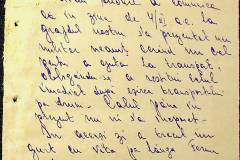 onoare a comunica
că în ziua de 4/VI a.c. la
grajdul nostru s'a prezentat un
militar neamț cerând un cal
pentru a ajuta la transport,
obligându-se a restitui calul
imediat după
pe drum. Calul până în
prezent nu ni s'a înapoiat.
În aceeași zi a trecut un
cu vite pe lângă Ferma